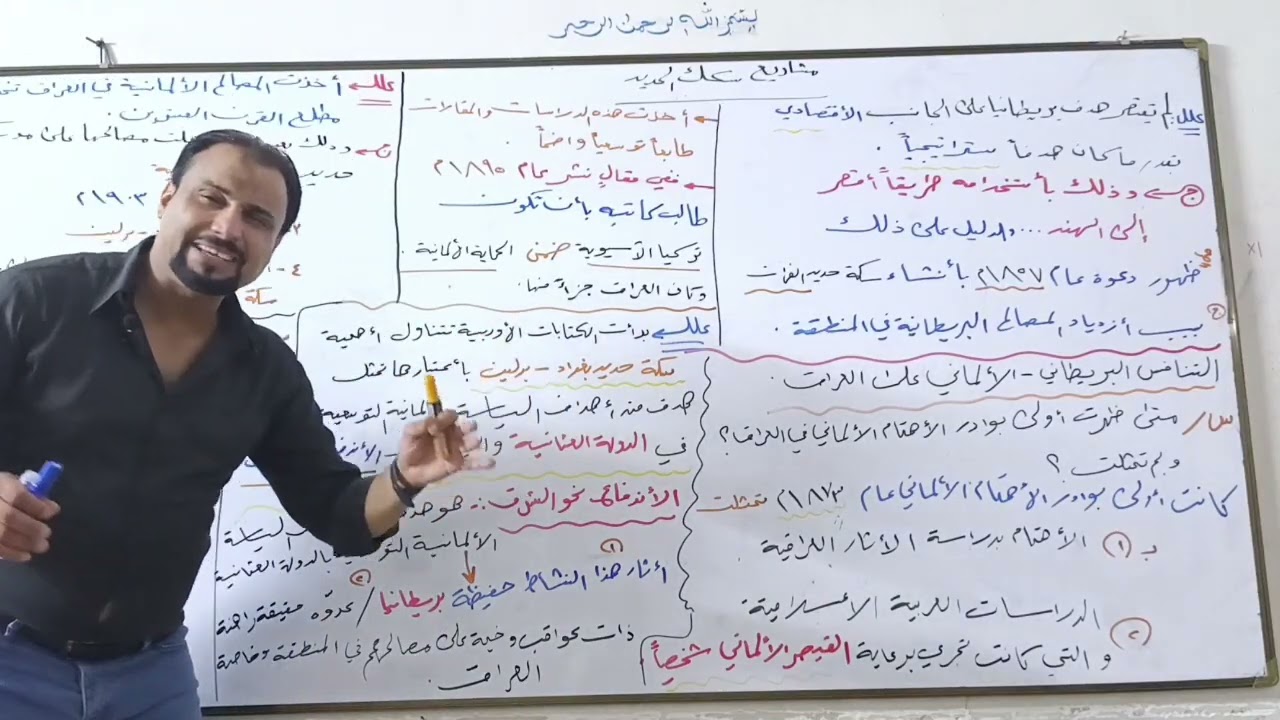 بسم الله الرحمن الرحيم
مشاريع سكك الحديد
علل/ لم يقتصر هدف بريطانيا على الجانب الأقتصادي
بقدر ما كان هدفاً ستراتيجياً .
ج ← وذلك بأستخدامه طريقاً أقصر
إلى الهند ... والدليل على ذلك
ظهور دعوة عام ١٨٥٧م بأنشاء سكة حديد الفرات
بسبب أزدياد المصالح البريطانية في المنطقة .
التنافس البريطاني - الألماني على العراق .
س/ متى ظهرت أولى بوادر الأهتمام الألماني في العراق ؟
وبم تمثلت ؟
كانت أولى بوادر الأهتمام الألماني عام ١٨٧٣م تمثلت
بـ ① الأهتمام بدراسة الأثار العراقية .
② الدراسات العربية الاسلامية
و التي كانت تجري برعاية القيصر الألماني شخصياً
← أخذت هذه الدراسات والمقالات
طابعاً توسعياً واضحاً .
← ففي مقال نشر عام ١٨٩٥م
طالب كاتبه بأن تكون
تركيا الآسيوية ضمن الحماية الألمانية .
وكان العراق جزءاً منها .
علل ← بدأت الكتابات الأوربية تتناول أهمية
سكة حديد بغداد - برلين بأعتبارها تمثل
هدف من أهداف السياسة الألمانية التوسعية
في الدولة العثمانية
الأندفاع نحو الشرق :- هو
السياسة
الألمانية بالدولة العثمانية
① أثار هذا النشاط حفيظة بريطانيا / ② عدوّه حقيقة راهنة
ذات عواقب وخيمة على مصالحهم في المنطقة وخاصة
العراق .
علل ← أخذت المصالح الألمانية في العراق
مطلع القرن العشرين .
ج ← وذلك
حديد
١٩٠٣م
برلين
٤ -
سكة